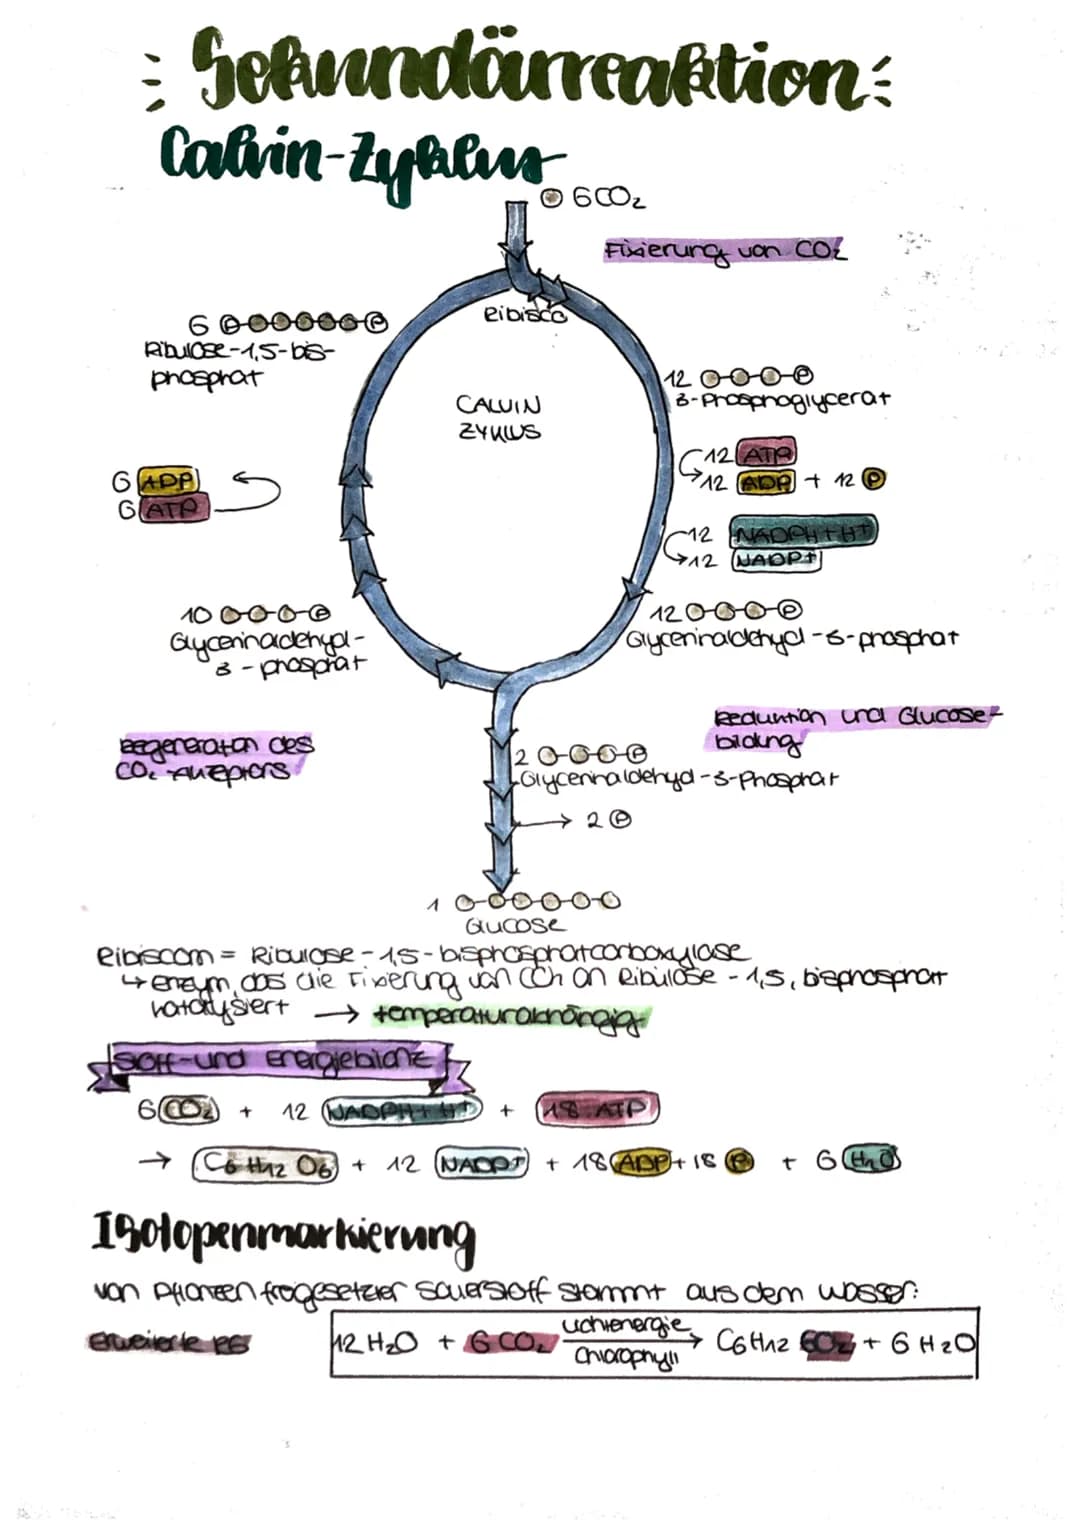 Sekundärreaktion
Calvin-Zyklus
6CO2
Fixierung von CO2
Ribisco
6 P P
Ribulose-1,5-bis-
phosphat
12 P
3-Phosphoglycerat
CALVIN
ZYKLUS
12 ATP
12 ADP + 12 P
6 ADP
6 ATP
12 NADPH+H+
12 NADP+
10 P
Glycerinaldehyd-
3-phosphat
12 P
Glycerinaldehyd-3-phosphat
Reduktion und Glucose-
bildung
Regeneration des
CO2-Akzeptors
2 P
Glycerinaldehyd-3-Phosphat
2 P
1
Glucose
Ribiscom = Ribulose-1,5-bisphosphatcarboxylase
↳ enzym, das die Fixierung von an Ribulose-1,5, bisphosphat
katalysiert → temperaturabhängig
Stoff-und Energiebilanz
6 CO2 + 12 NADPH+H+ + 18 ATP
→ C6H12O6 + 12 NADP+ + 18 ADP + 18 P + 6 H2O
Isotopenmarkierung
von Pflanzen frogesetzter Sauerstoff stammt aus dem Wasser:
erweiterte RG
12 H2O + 6 CO2 Lichtenergie → Chlorophyll C6H12 6O2 + 6 H2O